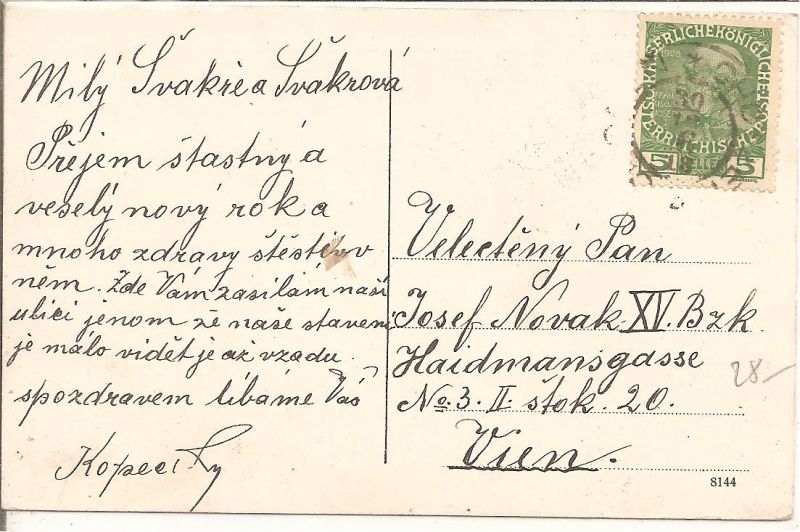 Milý Švakře a Švákrová
Přejem šťastný a
veselý nový rok a
mnoho zdravy štěstí v
něm. Zde Vám zasilám naší
ulici jenom že naše staveni
je málo vidět je až vzadu.
spozdravem libáme Vás
Kopecky
KAISERLICHEKÖNIGLICHEÖSTERREICHISCHE POST
1908
5 HELLER 5
Velectěný Pan
Josef Novak XIV. Bzk
Haidmansgasse
No. 3. II. štok. 20.
Vien.
28-
8144